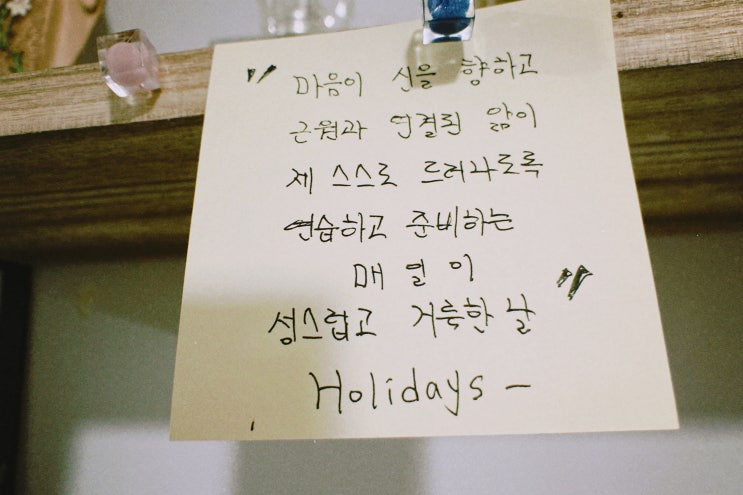 " 마음이 신을 향하고
근원과 연결된 앎이
제 스스로 드러나도록
연습하고 준비하는
매일이 "
성스럽고 거룩한 날
Holidays -